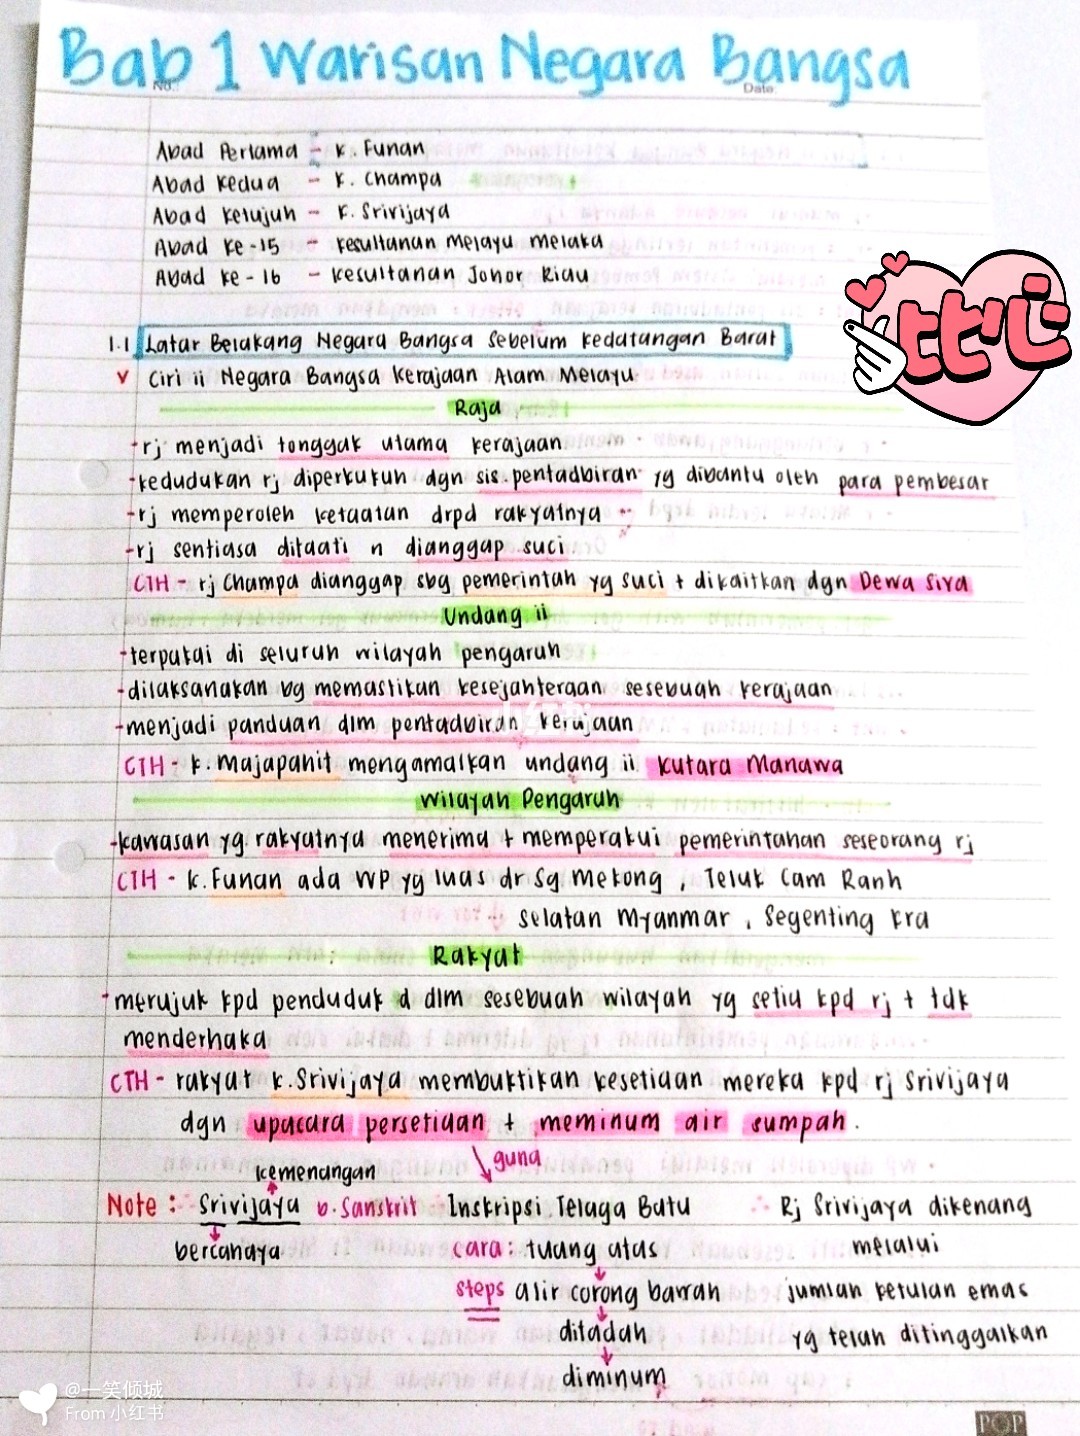 Bab 1 Warisan Negara Bangsa
No.: Date:
Abad Pertama - K. Funan
Abad Kedua - K. Champa
Abad Ketujuh - K. Srivijaya
Abad Ke-15 - Kesultanan Melayu Melaka
Abad Ke-16 - Kesultanan Johor Riau
比心
1.1 Latar Belakang Negara Bangsa Sebelum Kedatangan Barat
v Ciri ii Negara Bangsa Kerajaan Alam Melayu
Raja
-rj menjadi tonggak utama kerajaan
-kedudukan rj diperkukuh dgn sis.pentadbiran yg dibantu oleh para pembesar
-rj memperoleh ketaatan drpd rakyatnya
-rj sentiasa ditaati n dianggap suci
CTH - rj Champa dianggap sbg pemerintah yg suci + dikaitkan dgn Dewa Siva
Undang ii
-terpakai di seluruh wilayah pengaruh
-dilaksanakan bg memastikan kesejahteraan sesebuah kerajaan
-menjadi panduan dlm pentadbiran kerajaan
CTH - K. Majapahit mengamalkan undang ii Kutara Manawa
Wilayah Pengaruh
-kawasan yg rakyatnya menerima + memperakui pemerintahan seseorang rj
CTH - K. Funan ada WP yg luas dr Sg Mekong, Teluk Cam Ranh
selatan Myanmar, Segenting Kra
Rakyat
-merujuk kpd penduduk d dlm sesebuah wilayah yg setia kpd rj + tdk
menderhaka
CTH - rakyat K.Srivijaya membuktikan kesetiaan mereka kpd rj Srivijaya
dgn upacara persetiaan + meminum air sumpah.
kemenangan guna
Note: Srivijaya b.Sanskrit Inskripsi Telaga Batu Rj Srivijaya dikenang
bercahaya cara: tuang atas melalui
steps alir corong bawah jumlah ketulan emas
ditadah yg telah ditinggalkan
diminum
@一笑倾城
From 小红书
小红书
POP